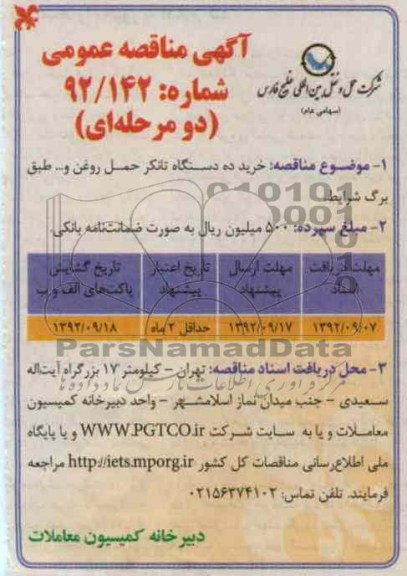 آگهی مناقصه عمومی
شماره: ۹۲/۱۴۲
(دو مرحله‌ای)
شرکت حمل و نقل بین المللی خلیج فارس
(سهامی عام)
۱- موضوع مناقصه: خرید ده دستگاه تانکر حمل روغن و... طبق
برگ شرایط.
۲- مبلغ سپرده: ۵۰۰ میلیون ریال به صورت ضمانت‌نامه بانکی.
مهلت دریافت اسناد
مهلت ارسال پیشنهاد
تاریخ اعتبار پیشنهاد
تاریخ گشایش پاکت‌های الف و ب
۱۳۹۲/۰۹/۰۷
۱۳۹۲/۰۹/۱۷
حداقل ۲ ماه
۱۳۹۲/۰۹/۱۸
ParsNamadData
۳- محل دریافت اسناد مناقصه: تهران - کیلومتر ۱۷ بزرگراه آیت‌اله
سعیدی - جنب میدان نماز اسلامشهر - واحد دبیرخانه کمیسیون
معاملات و یا به سایت شرکت WWW.PGTCO.ir و یا پایگاه
ملی اطلاع‌رسانی مناقصات کل کشور http://iets.mporg.ir مراجعه
فرمایند. تلفن تماس: ۰۲۱۵۶۳۷۴۱۰۲
دبیرخانه کمیسیون معاملات